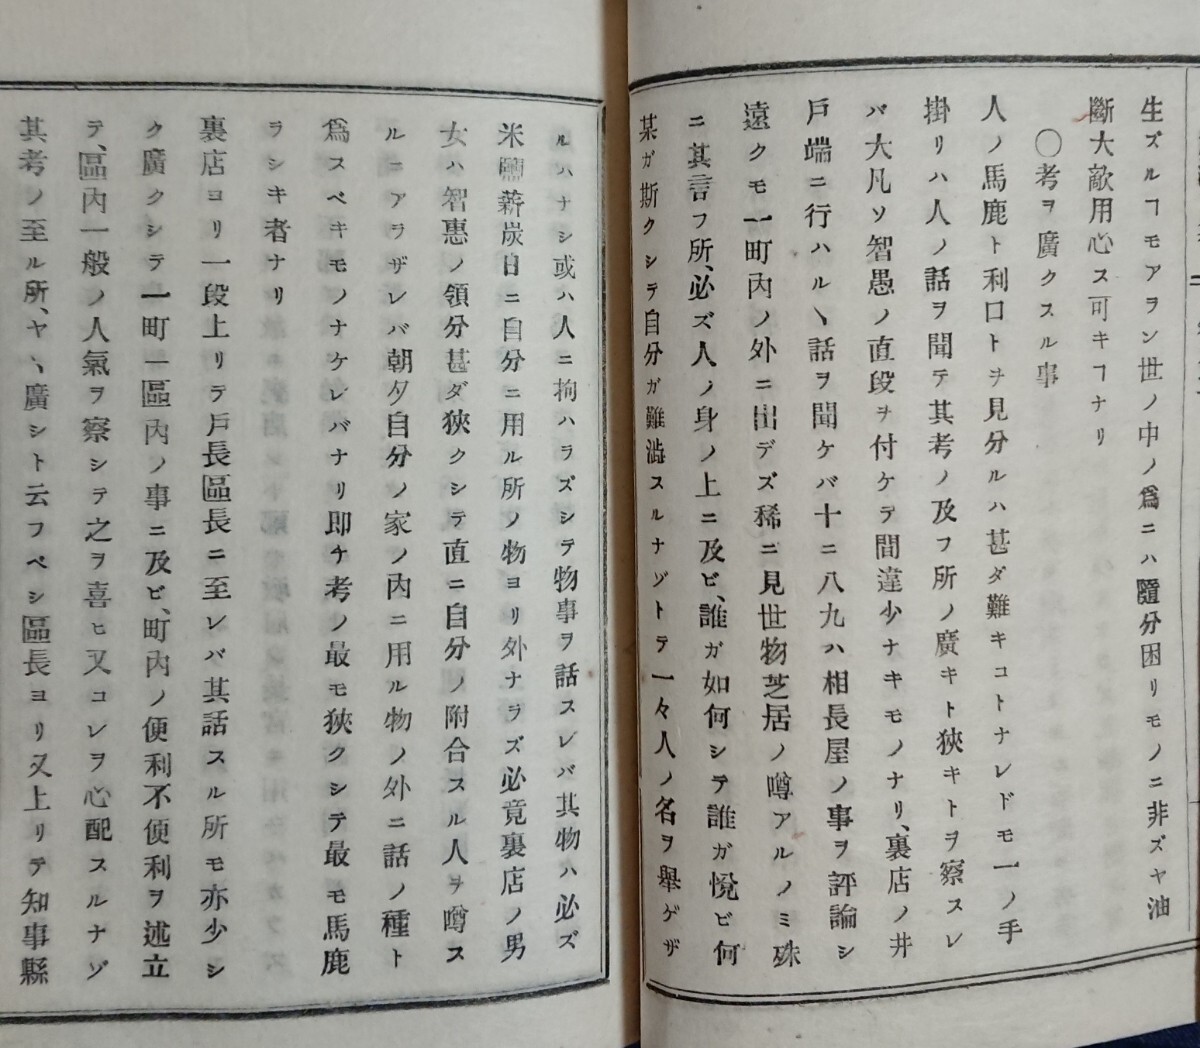 生ズルヿモアラン世ノ中ノ爲ニハ隨分困リモノニ非ズヤ油
斷大敵用心ス可キヿナリ
〇考ヲ廣クスル事
人ノ馬鹿ト利口トヲ見分ルハ甚ダ難キコトナレドモ一ノ手
掛リハ人ノ話ヲ聞テ其考ノ及フ所ノ廣キト狹キトヲ察スレ
バ大凡ソ智愚ノ直段ヲ付ケテ間違少ナキモノナリ、裏店ノ井
戸端ニ行ハルヽ話ヲ聞ケバ十ニ八九ハ相長屋ノ事ヲ評論シ
遠クモ一町內ノ外ニ出デズ稀ニ見世物芝居ノ噂アルノミ殊
ニ其言フ所、必ズ人ノ身ノ上ニ及ビ、誰ガ如何シテ誰ガ悅ビ何
某ガ斯クシテ自分ガ難澁スルナゾトテ一々人ノ名ヲ擧ゲザ
ルハナシ或ハ人ニ拘ハラズシテ物事ヲ話スレバ其物ハ必ズ
米鹽薪炭日ニ自分ニ用ル所ノ物ヨリ外ナラズ必竟裏店ノ男
女ハ智惠ノ領分甚ダ狹クシテ直ニ自分ノ附合スル人ヲ噂ス
ルニアラザレバ朝夕自分ノ家ノ內ニ用ル物ノ外ニ話ノ種ト
爲スベキモノナケレバナリ卽チ考ノ最モ狹クシテ最モ馬鹿
ラシキ者ナリ
裏店ヨリ一段上リテ戸長區長ニ至レバ其話スル所モ亦少シ
ク廣クシテ一町一區內ノ事ニ及ビ、町內ノ便利不便利ヲ述立
テ、區內一般ノ人氣ヲ察シテ之ヲ喜ヒ又コレヲ心配スルナゾ
其考ノ至ル所、ヤヽ廣シト云フベシ區長ヨリ又上リテ知事縣